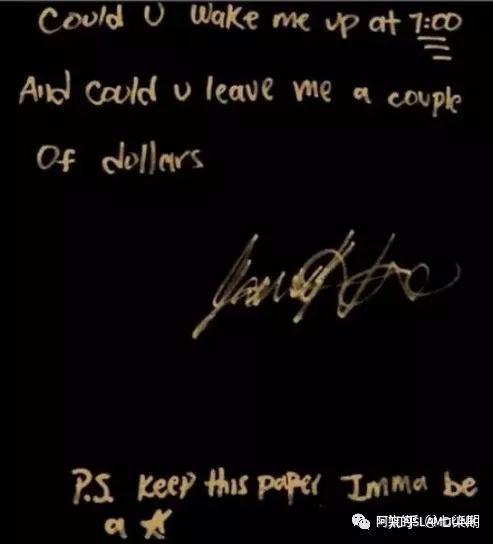 Could U wake me up at 7:00
And could u leave me a couple
Of dollars
P.S. Keep this paper Imma be
a ☆